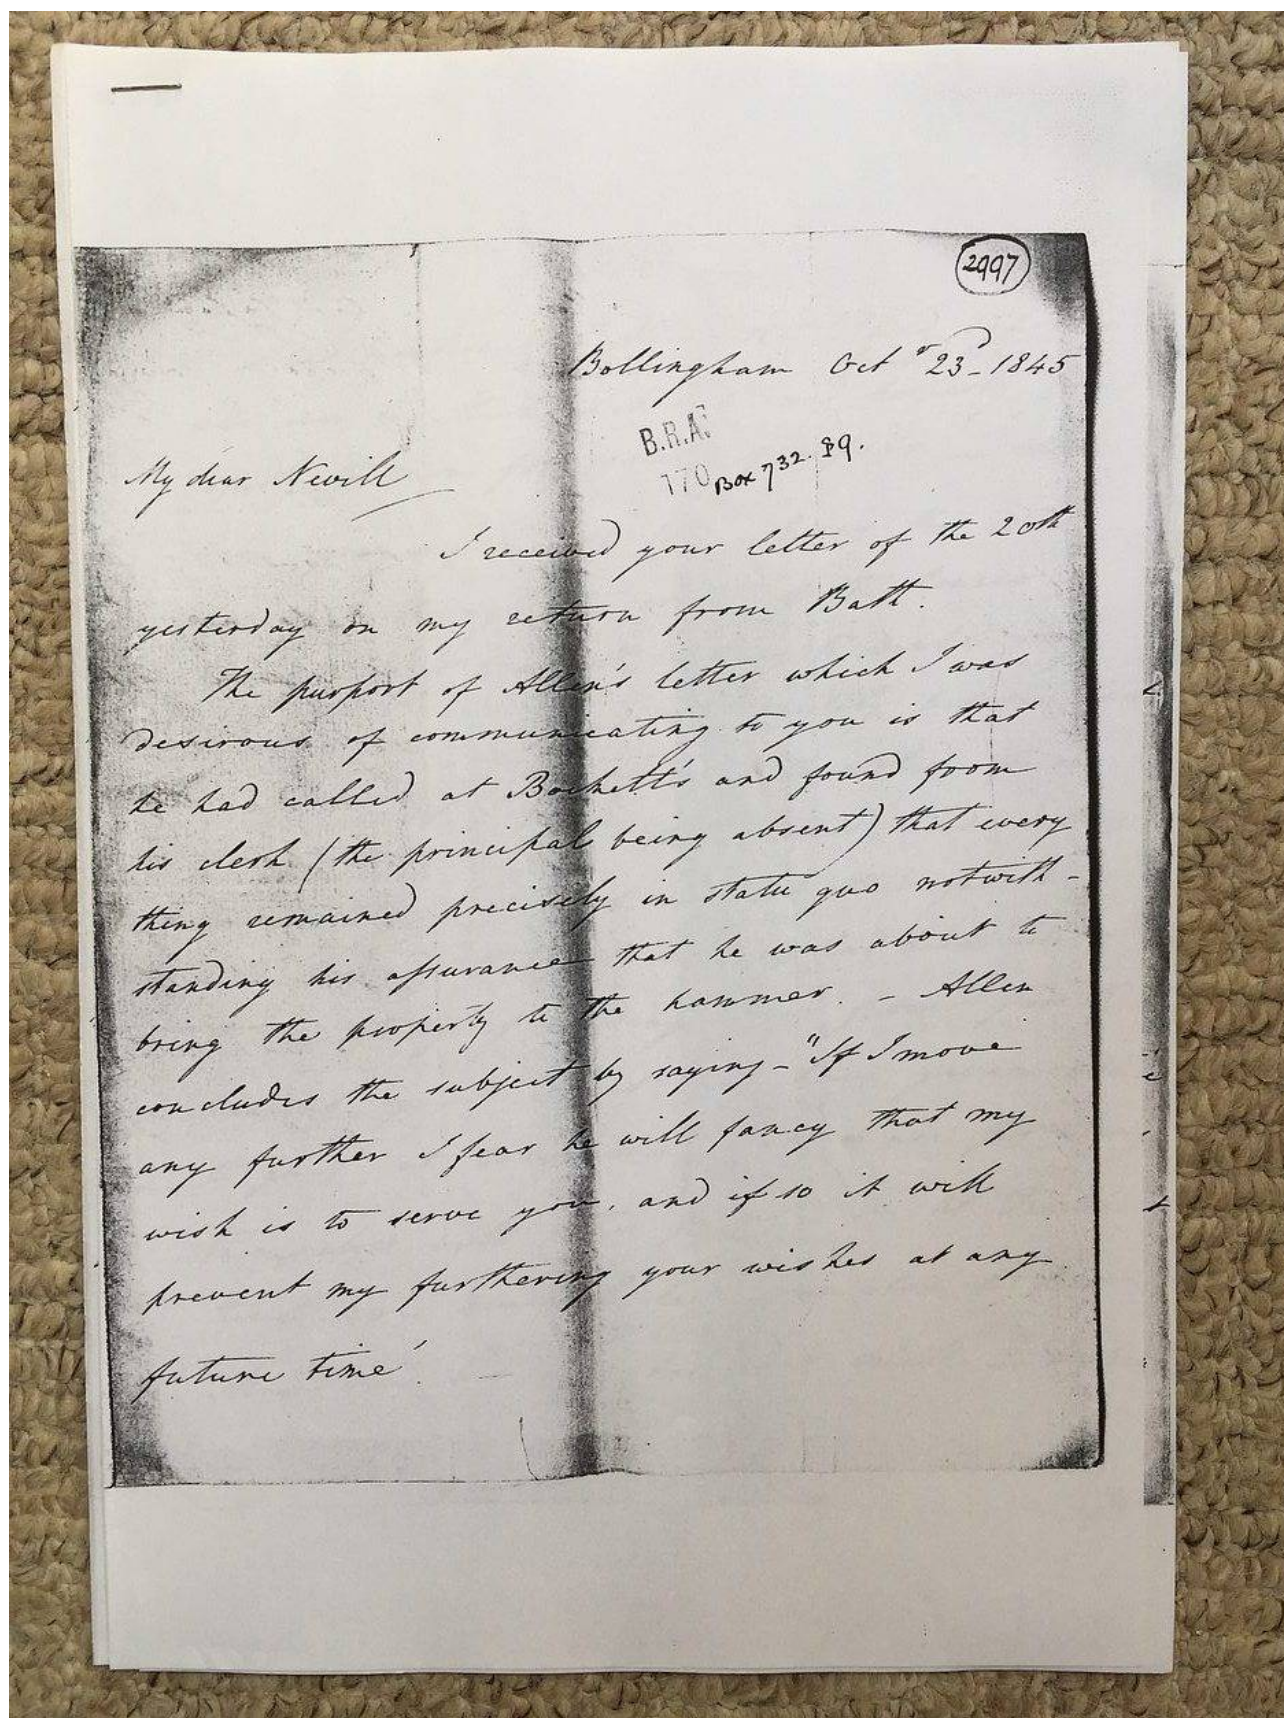 2997
Bollingham Octr 23d - 1845
B.R.A.
170 Box 732. 89.
My dear Nevill
I received your letter of the 20th
yesterday on my return from Bath.
The purport of Allen's letter which I was
desirous of communicating to you is that
he had called at Bockett's and found from
his clerk (the principal being absent) that every
thing remained precisely in statu quo notwith-
standing his assurance that he was about to
bring the property to the hammer. - Allen
concludes the subject by saying - "If I move
any further I fear he will fancy that my
wish is to serve you, and if so it will
prevent my furthering your wishes at any
future time'.